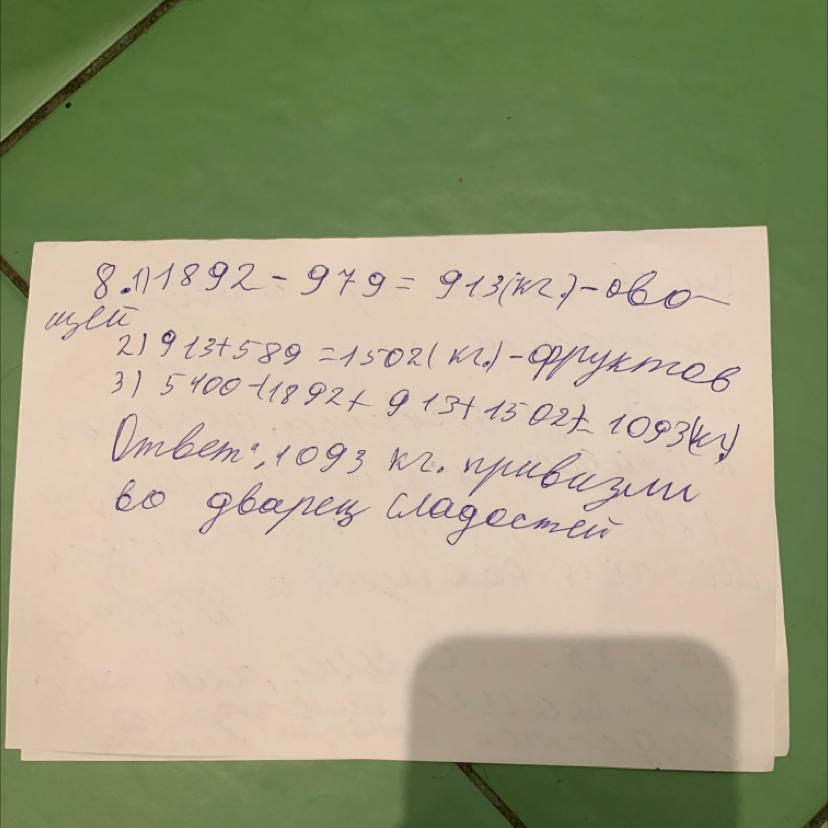 8.1) 1892 - 979 = 913(кг.) - ово-
щей
2) 913+589 =1502( кг.) - фруктов
3) 5400-(1892+ 913+1502)= 1093(кг)
Ответ: 1093 кг. привизли
во дварец сладостей